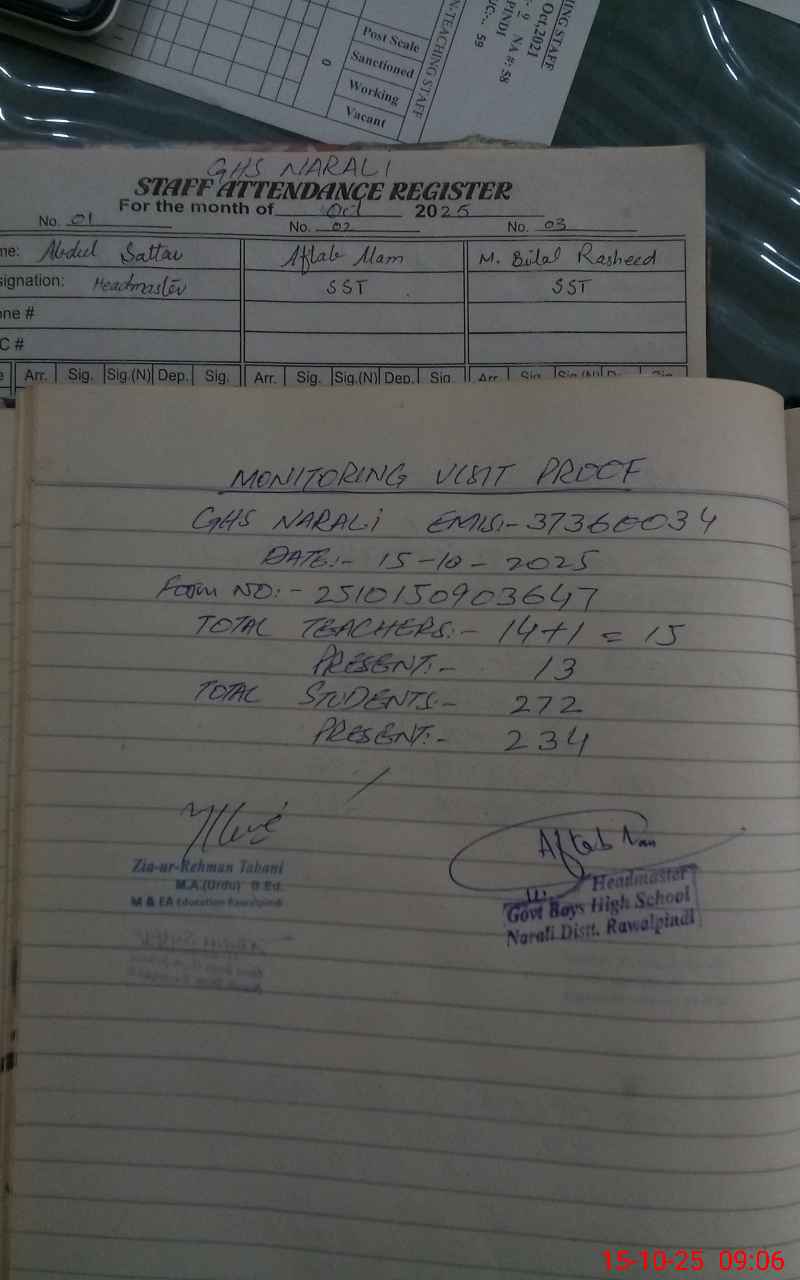 ING STAFF
Oct,2021
9 NA #: 58
PINDI
UC-: 59
N-TEACHING STAFF
Post Scale
Sanctioned
Working
Vacant
0
GHS NARALI
STAFF ATTENDANCE REGISTER
For the month of Oct 2025
No. 01 No. 02 No. 03
me: Abdul Sattar Aftab Alam M. Bilal Rasheed
signation: Headmaster SST SST
one #
C #
e Arr. Sig. Sig.(N) Dep. Sig. Arr. Sig. Sig.(N) Dep. Sig. Arr. Sig. Sig.(N)
MONITORING VISIT PROOF
GHS NARALI EMIS:- 37360034
DATE:- 15-10-2025
Form NO:- 2510150903647
TOTAL TEACHERS:- 14+1 = 15
PRESENT:- 13
TOTAL STUDENTS:- 272
PRESENT:- 234
Aftab
Zia-ur-Rehman Tabani
M.A.(Urdu) B.Ed.
M & EA Education Rawalpindi
Headmaster
Govt Boys High School
Narali Distt. Rawalpindi
15-10-25 09:06